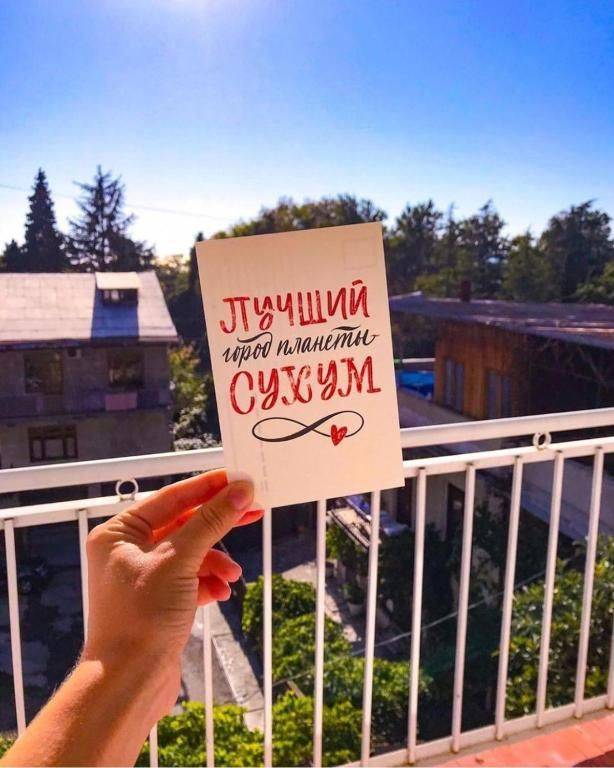 Лучший
город планеты
Сухум